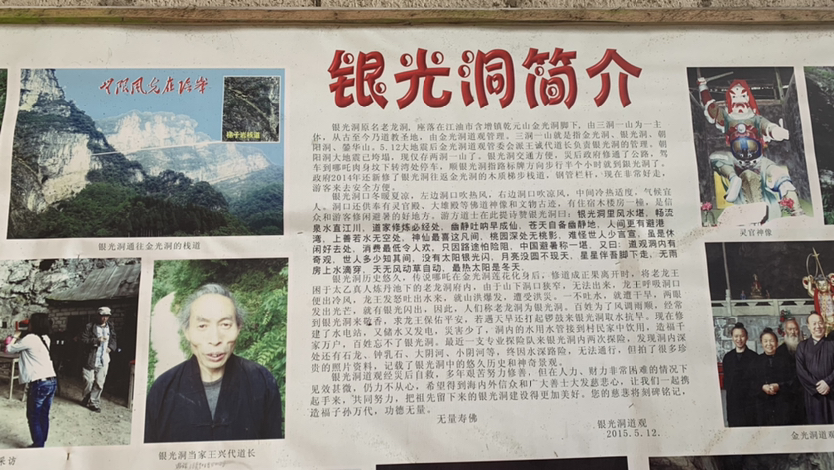 无限风光在险峰
梯子岩栈道
银光洞通往金光洞的栈道
采访
银光洞当家王兴代道长
银光洞简介
银光洞原名老龙洞，座落在江油市含增镇乾元山金光洞脚下，由三洞一山为一主
体，从古至今乃道教圣地，由金光洞道观管理。三洞一山就是指金光洞、银光洞、朝
阳洞、鎣华山。5.12大地震后金光洞道观管委会派王诚代道长负责银光洞的管理。朝
阳洞大地震已垮塌，现仅存两洞一山了。银光洞交通方便，灾后政府修通了公路，驾
车到哪吒肉身坟下转湾处停车，顺银光洞指路标牌方向步行半个小时就到银光洞了。
政府2014年还新修了银光洞往返金光洞的木质梯步栈道，钢管栏杆，现在非常好走，
游客来去安全方便。
银光洞口冬暖夏凉，左边洞口吹热风，右边洞口吹凉风，中间冷热适度，气候宜
人。洞口还供奉有灵官殿、大雄殿等佛道神像和文物古迹，有住宿木楼房一幢，是信
众和游客修闲避暑的好地方。游方道士在此提诗赞银光洞曰：银光洞里风水堪，畅流
泉水直江川，道家修炼必经处，幽静吐呐早成仙，苍天自备幽静地，人间更有避港
湾，上善若水无空处，神仙最喜这凡间，桃园深处无桃影，难怪世人少言言，虽是休
闲好去处，消费最低今人欢，只因路途怕险阻，中国避暑称一堪。又曰：道观洞内有
奇观，世人多少知其间，没有太阳银光闪，月亮没圆不现天，星星伴吾脚下走，无雨
房上水滴穿，天无风动草自动，最热太阳是冬天。
银光洞历史悠久，传说哪吒在金光洞莲花化身后，修道成正果离开时，将老龙王
困于太乙真人炼丹池下的老龙洞府内，由于山下洞口狭窄，无法出来，龙王呼吸洞口
便出冷风，龙王发怒吐出水来，就山洪爆发，遭受洪灾。一不吐水，就遭干旱，两眼
发出光芒，就有银光闪出，因此，人们称老龙洞为银光洞。百姓为了风调雨顺，经常
到银光洞来敬香，求龙王保佑平安，若遇天旱还打起锣鼓来银光洞取水抗旱。现在修
建了水电站，又储水又发电，灾害少了，洞内的水用水管接到村民家中饮用，造福千
家万户，百姓忘不了银光洞。最近一支专业探险队来银光洞内两次探险，发现洞内深
处还有石龙、钟乳石、大阴河、小阴河等，终因水深路险，无法通行，但拍了很多珍
贵的照片资料，记载了银光洞中的悠久历史和神奇景观。
银光洞道观经灾后自救，多年艰苦努力修善，但在人力、财力非常困难的情况下
见效甚微，仍力不从心，希望得到海内外信众和广大善士大发慈悲心，让我们一起携
起手来，共同努力，把祖先留下来的银光洞建设得更加美好。您的慈善将刻碑铭记，
造福子孙万代，功德无量。
无量寿佛
银光洞道观
2015.5.12.
灵官神像
金光洞道观